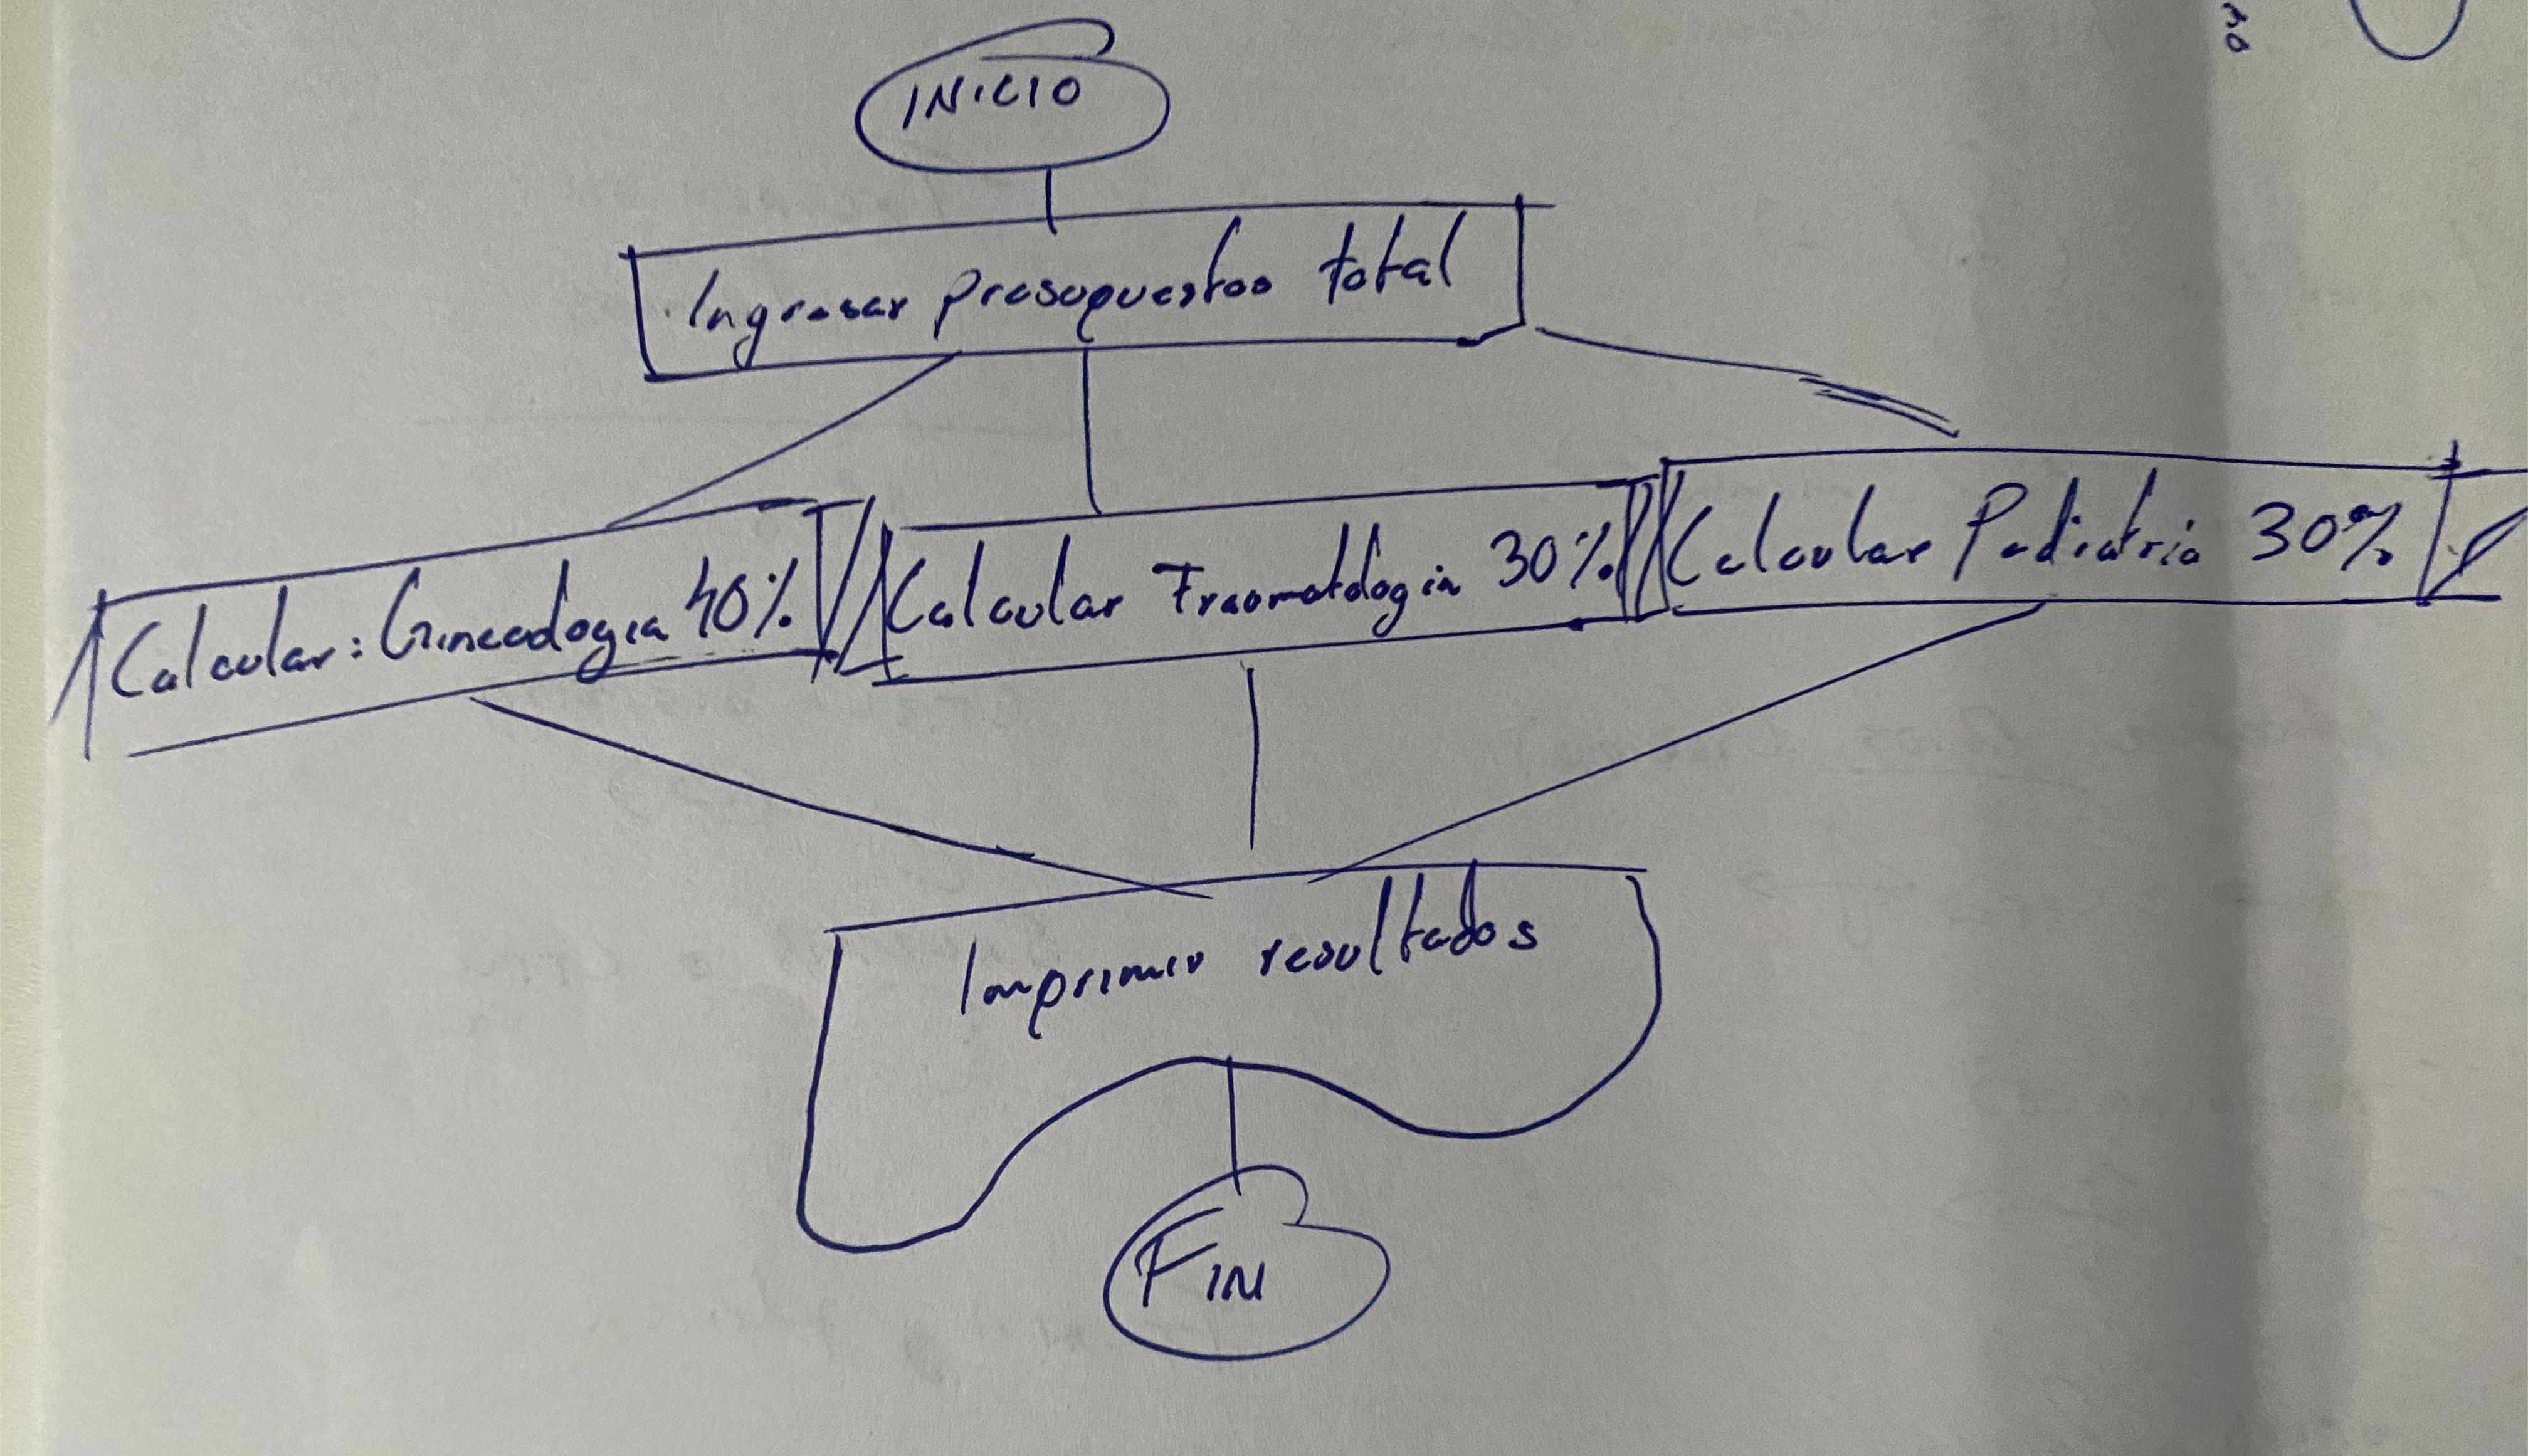 INICIO
Ingresar presupuestos total
Calcular: Ginecologia 40%
Calcular Traomatologia 30%
Calcular Pediatria 30%
Imprimir resultados
FIN